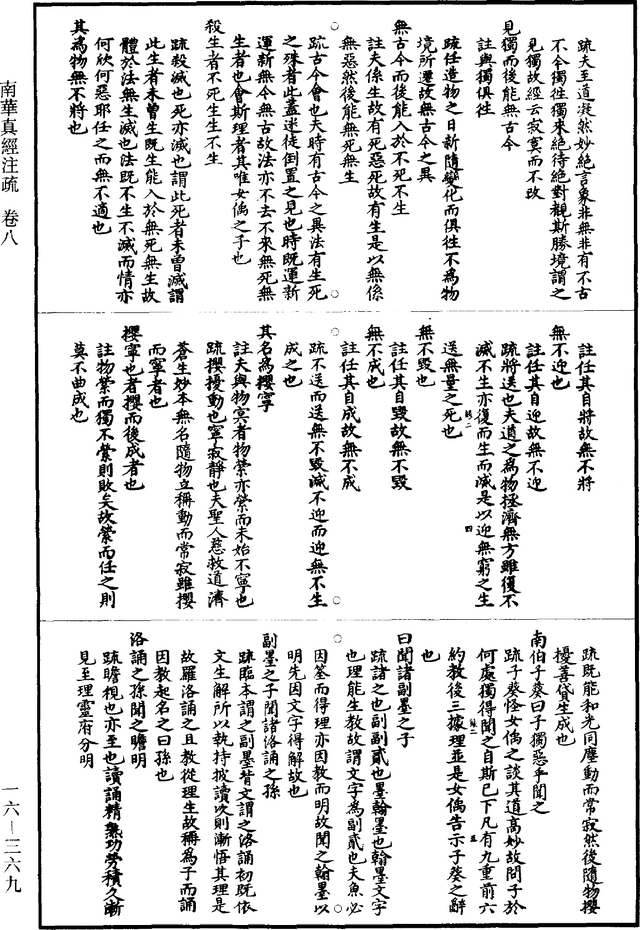 南華真經注疏 卷八
疏夫至道凝然妙絕言象非無非有不古
不今獨往獨來絕待絕對覩斯勝境謂之
見獨故經云寂寞而不改
見獨而後能無古今
註與獨俱往
疏任造物之日新隨變化而俱往不為物
境所遷故無古今之異
無古今而後能入於不死不生
註夫係生故有死惡死故有生是以無係
無惡然後能無死無生
疏古今會也夫時有古今之異法有生死
之殊者此蓋迷徒倒置之見也時既運新
運新無今無古故法亦不去不來無死無
生者也會斯理者其唯女偊之子也
殺生者不死生生不生
疏殺滅也死亦滅也謂此死者未曾滅謂
此生者未曾生既生能入於無死無生故
體於法無生滅也法既不生不滅而情亦
何欣何惡耶任之而無不適也
其為物無不將也
註任其自將故無不將
無不迎也
註任其自迎故無不迎
疏將送也夫道之為物拯濟無方雖復不
滅不生亦復而生而滅是以迎無窮之生
送無量之死也
無不毀也
註任其自毀故無不毀
無不成也
註任其自成故無不成
疏不送而送無不毀滅不迎而迎無不生
成之也
其名為攖寧
註夫與物冥者物縈亦縈而未始不寧也
疏攖擾動也寧寂靜也夫聖人慈救道濟
蒼生妙本無名隨物立稱動而常寂雖攖
而寧者也
攖寧也者攖而後成者也
註物縈而獨不縈則敗矣故縈而任之則
莫不曲成也
疏既能和光同塵動而常寂然後隨物攖
擾善貸生成也
南伯子葵曰子獨惡乎聞之
疏子葵怪女偊之談其道高妙故問子於
何處獨得聞之自斯已下凡有九重前六
約教後三據理並是女偊告示子葵之辭
也
曰聞諸副墨之子
疏諸之也副副貳也墨翰墨也翰墨文字
也理能生教故謂文字為副貳也夫魚必
因筌而得理亦因教而明故聞之翰墨以
明先因文字得解故也
副墨之子聞諸洛誦之孫
疏臨本謂之副墨背文謂之洛誦初既依
文生解所以執持披讀次則漸悟其理是
故羅洛誦之且教從理生故稱為子而誦
因教起名之曰孫也
洛誦之孫聞之瞻明
疏瞻視也亦至也讀誦精熟功勞積久漸
見至理靈府分明
一六—三六九